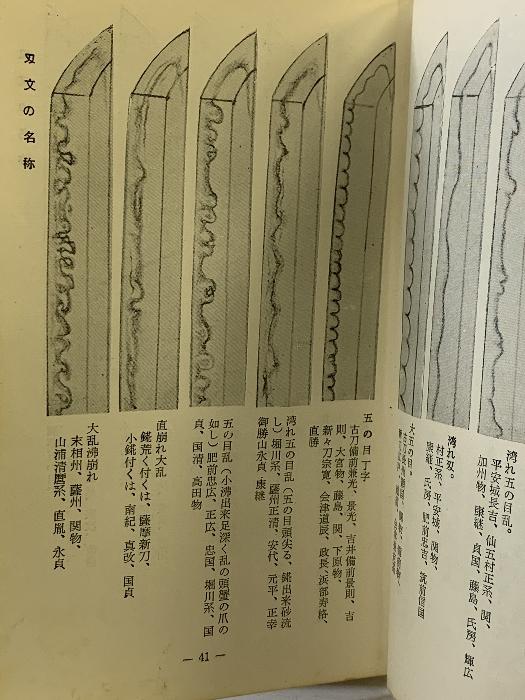 湾れ五の目乱。
平安城長吉、仙五村正系、関、
加州物、康継、貞国、藤島、氏房、輝広
湾れ刄。
村正系、平安城、関物、
康継、氏房、肥前忠吉、筑前信国
大五の目。
五の目丁字
古刀備前兼光、景光、吉井備前景則、吉
則、大宮物、藤島、関、下原物、
新々刀宗寛、会津道辰、政長、浜部寿格、
直勝
湾れ五の目乱（五の目頭尖る、錵出来砂流
し）堀川系、薩州正清、安代、元平、正幸
御勝山永貞、康継
五の目乱（小沸出来足深く乱の頭蟹の爪の
如し）肥前忠広、正広、忠国、堀川系、国
貞、国清、高田物
直崩れ大乱
錵荒く付くは、薩摩新刀、
小錵付くは、南紀、真改、国貞
大乱沸崩れ
末相州、薩州、関物、
山浦清麿系、直胤、永貞
刄文の名称
— 41 —